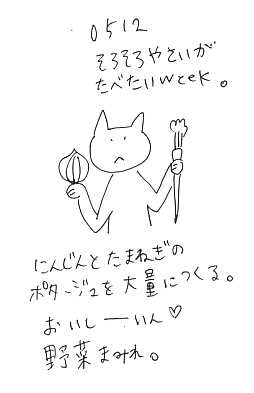 0512
そろそろやさいが
たべたいweek。
にんじんとたまねぎの
ポタージュを大量につくる。
おいしーいん♡
野菜まみれ。